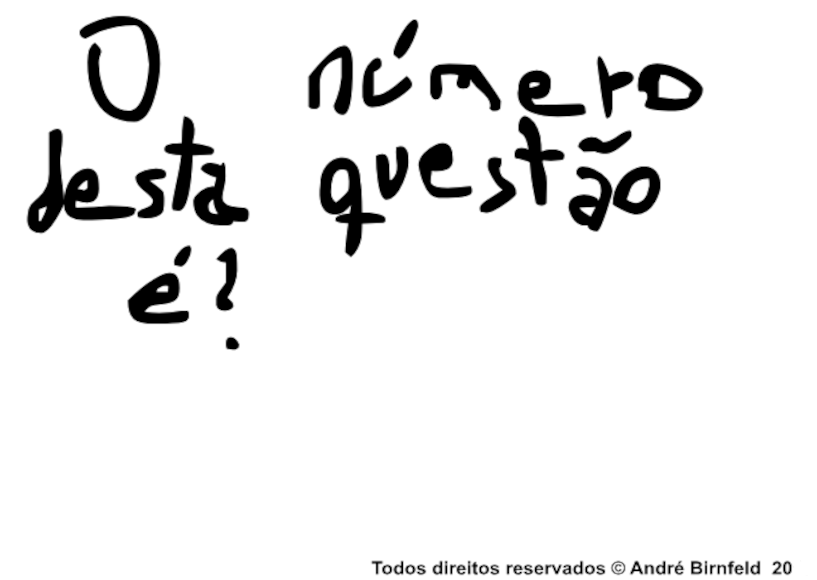 O número
desta questão
é?
Todos direitos reservados © André Birnfeld 20